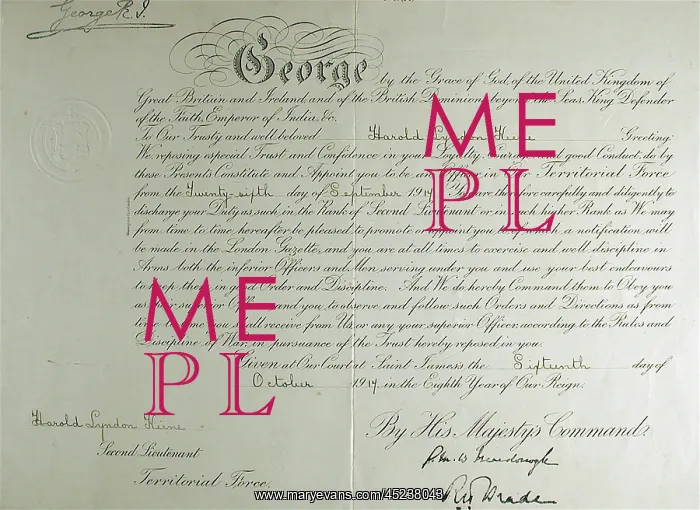 George R. I.
George by the Grace of God, of the United Kingdom of
Great Britain and Ireland and of the British Dominions beyond the Seas, King, Defender
of the Faith, Emperor of India, &c.
To Our Trusty and well beloved Harold Lyndon Heine Greeting:
We, reposing especial Trust and Confidence in your Loyalty, Courage, and good Conduct, do by
these Presents Constitute and Appoint you to be an Officer in Our Territorial Force
from the Twenty-sixth day of September 1917. You are therefore carefully and diligently to
discharge your Duty as such in the Rank of Second Lieutenant or in such higher Rank as We may
from time to time hereafter be pleased to promote or appoint you to, of which a notification will
be made in the London Gazette, and you are at all times to exercise and well discipline in
Arms both the inferior Officers and Men serving under you and use your best endeavours
to keep them in good Order and Discipline. And We do hereby Command them to Obey you
as their superior Officer and you, to observe and follow such Orders and Directions as from
time to time you shall receive from Us, or any your superior Officer, according to the Rules and
Discipline of War, in pursuance of the Trust hereby reposed in you.
Given at Our Court, at Saint James's, the Sixteenth day of
October 1917, in the Eighth Year of Our Reign.
Harold Lyndon Heine
Second Lieutenant
Territorial Force.
By His Majesty's Command.
ME
PL
ME
PL
www.maryevans.com/45238043